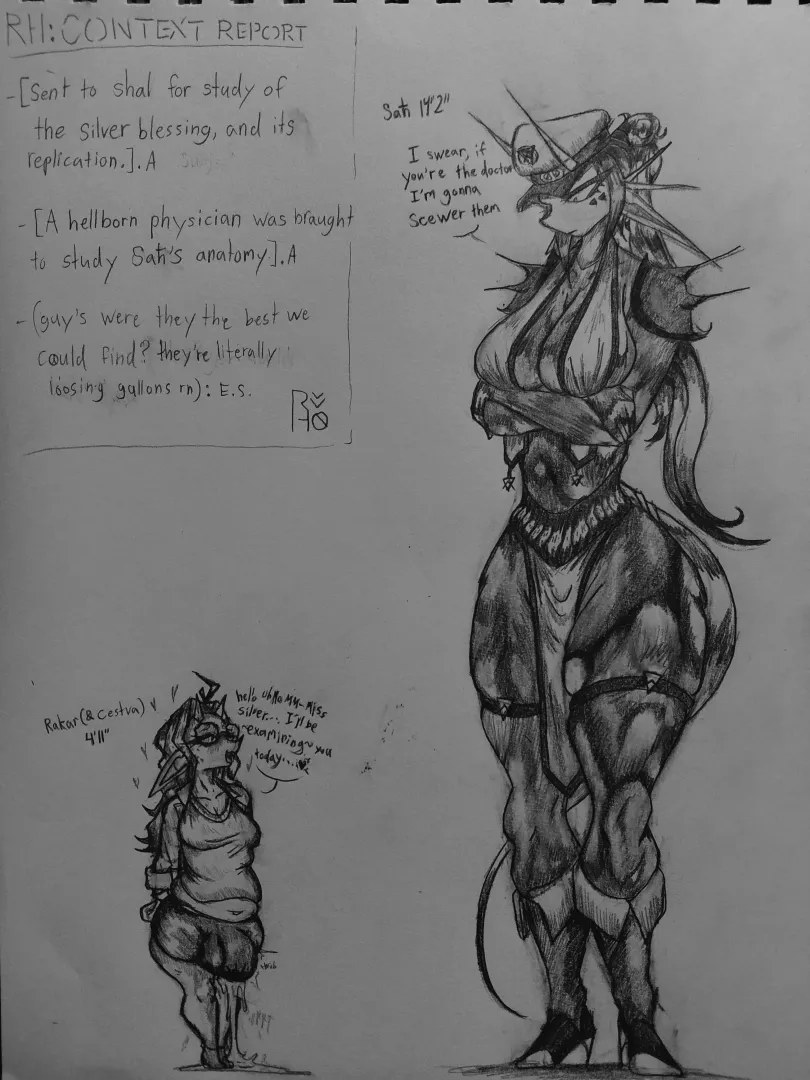 RH: CONTEXT REPORT
-[Sent to shal for study of
the silver blessing, and its
replication.].A
-[A hellborn physician was braught
to study Sati's anatomy].A
-(guy's were they the best we
could find? they're literally
loosing gallons rn): E.S.
RHO
Sati 14'2"
I swear, if
you're the doctor
I'm gonna
scewer them
Rakar(& Cestva)
4'11"
hello uhllo Mu-Miss
silver... I'll be
~examining~ you
today...